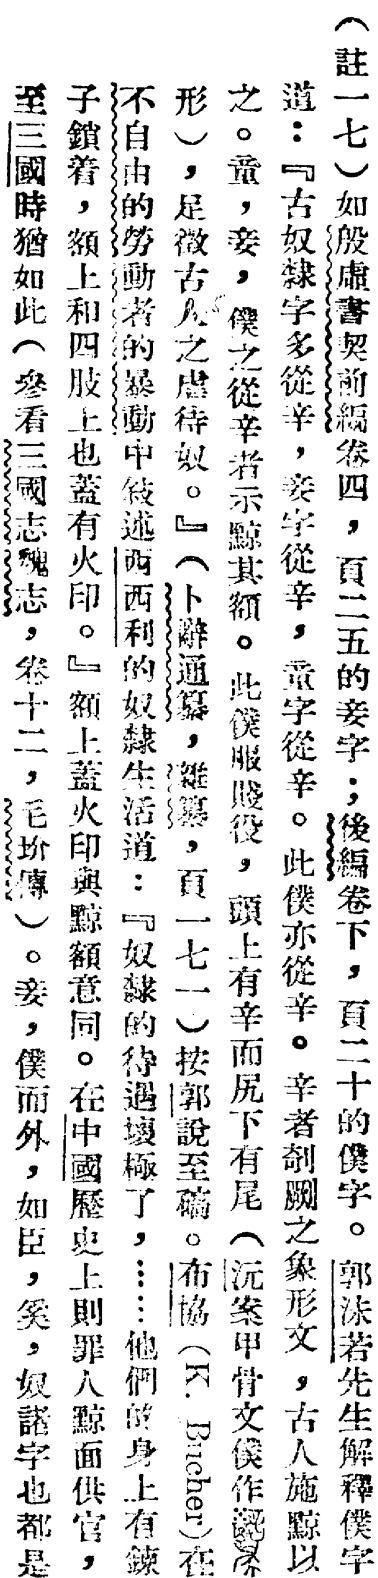 （註一七）如殷虛書契前編卷四，頁二五的妾字；後編卷下，頁二十的僕字。郭沫若先生解釋僕字
道：『古奴隸字多從辛，妾字從辛，童字從辛。此僕亦從辛。辛者剞劂之象形文，古人施黥以
之。童，妾，僕之從辛者示黥其額。此僕服賤役，頭上有辛而尻下有尾（沅案甲骨文僕作
形），足徵古人之虐待奴。』（卜辭通纂，雜纂，頁一七一）按郭說至礭。布協（K. Bücher）在
不自由的勞動者的暴動中敍述西西利的奴隸生活道：『奴隸的待遇壞極了，……他們的身上有鍊
子鎖着，額上和四肢上也蓋有火印。』額上蓋火印與黥額意同。在中國歷史上則罪人黥面供官，
至三國時猶如此（參看三國志魏志，卷十二，毛玠傳）。妾，僕而外，如臣，奚，奴諸字也都是